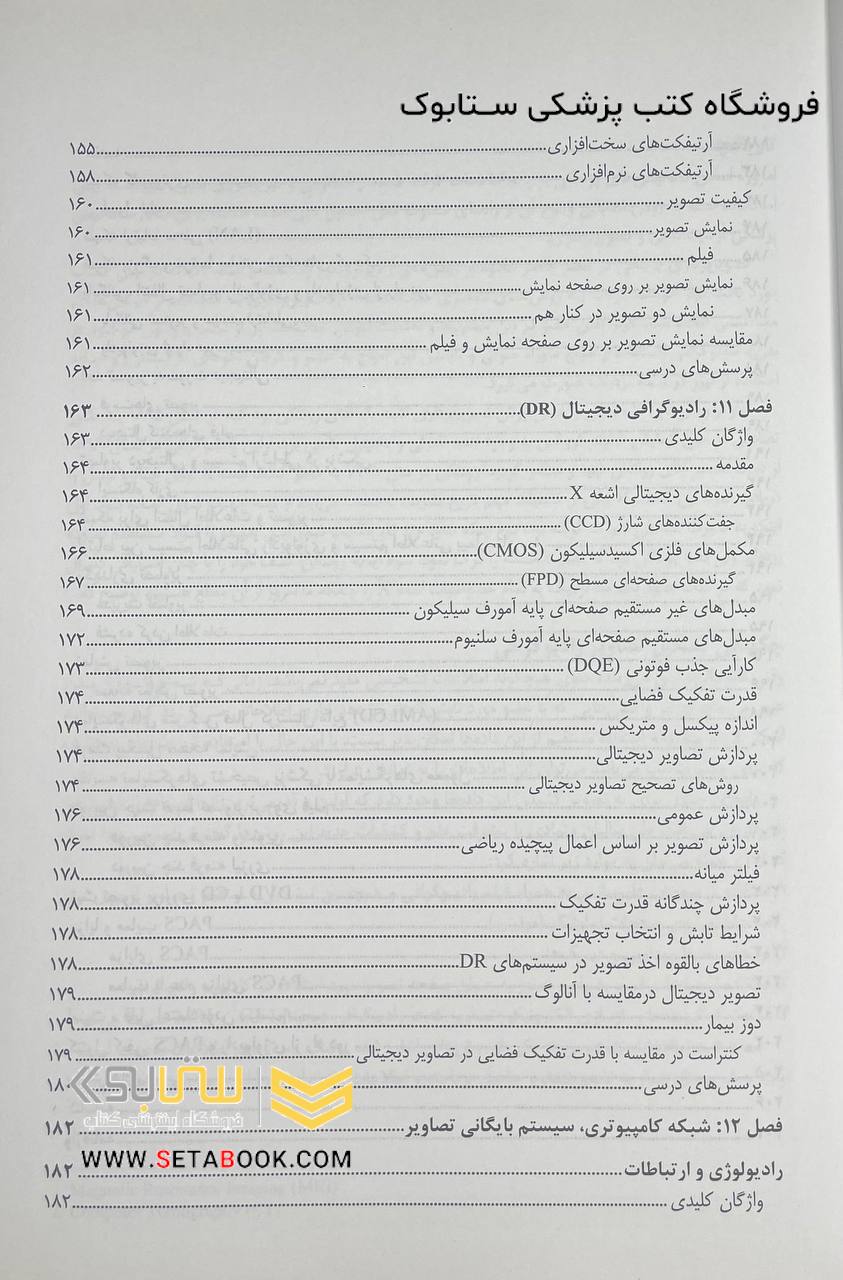 فروشگاه کتب پزشکی ستابوک
آرتیفکت‌های سخت‌افزاری ۱۵۵
آرتیفکت‌های نرم‌افزاری ۱۵۸
کیفیت تصویر ۱۶۰
نمایش تصویر ۱۶۰
فیلم ۱۶۱
نمایش تصویر بر روی صفحه نمایش ۱۶۱
نمایش دو تصویر در کنار هم ۱۶۱
مقایسه نمایش تصویر بر روی صفحه نمایش و فیلم ۱۶۱
پرسش‌های درسی ۱۶۲
فصل ۱۱: رادیوگرافی دیجیتال (DR) ۱۶۳
واژگان کلیدی ۱۶۳
مقدمه ۱۶۴
گیرنده‌های دیجیتالی اشعه X ۱۶۴
جفت‌کننده‌های شارژ (CCD) ۱۶۴
مکمل‌های فلزی اکسیدسیلیکون (CMOS) ۱۶۶
گیرنده‌های صفحه‌ای مسطح (FPD) ۱۶۷
مبدل‌های غیر مستقیم صفحه‌ای پایه آمورف سیلیکون ۱۶۹
مبدل‌های مستقیم صفحه‌ای پایه آمورف سلنیوم ۱۷۲
کارآیی جذب فوتونی (DQE) ۱۷۳
قدرت تفکیک فضایی ۱۷۴
اندازه پیکسل و متریکس ۱۷۴
پردازش تصاویر دیجیتالی ۱۷۴
روش‌های تصحیح تصاویر دیجیتالی ۱۷۴
پردازش عمومی ۱۷۶
پردازش تصویر بر اساس اعمال پیچیده ریاضی ۱۷۶
فیلتر میانه ۱۷۸
پردازش چندگانه قدرت تفکیک ۱۷۸
شرایط تابش و انتخاب تجهیزات ۱۷۸
خطاهای بالقوه اخذ تصویر در سیستم‌های DR ۱۷۸
تصویر دیجیتال درمقایسه با آنالوگ ۱۷۹
دوز بیمار ۱۷۹
کنتراست در مقایسه با قدرت تفکیک فضایی در تصاویر دیجیتالی ۱۷۹
پرسش‌های درسی ۱۸۰
ستابوک
فروشگاه اینترنتی کتاب
فصل ۱۲: شبکه کامپیوتری، سیستم بایگانی تصاویر ۱۸۲
WWW.SETABOOK.COM
رادیولوژی و ارتباطات ۱۸۲
واژگان کلیدی ۱۸۲